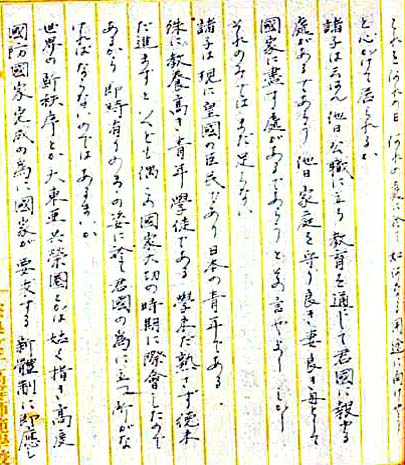 それを何れの日 何れの處に於て 如何なる用途に向けやう
と心がけて居られるか
諸子は云はん 他日公職に立ち 教育を通じて君國に報ゆる
處があるであらう 他日家庭を守り良き妻良き母として
國家に盡す處があるであらうと 其言やよし しかし
それのみではまだ足らない
諸子は現に皇國の臣民であり日本の青年である
殊に教養高き青年學徒である 學未だ熟さず德未
だ進まずと雖も偶々この國家大切の時期に際會したので
あるから 即時有りのまゝの姿に於て君國の為に立つ所がな
ければならないのではあるまいか
世界の新秩序とか大東亜共榮圏とかは姑く措き高度
國防國家完成の為に國家が要求する新體制に即應し